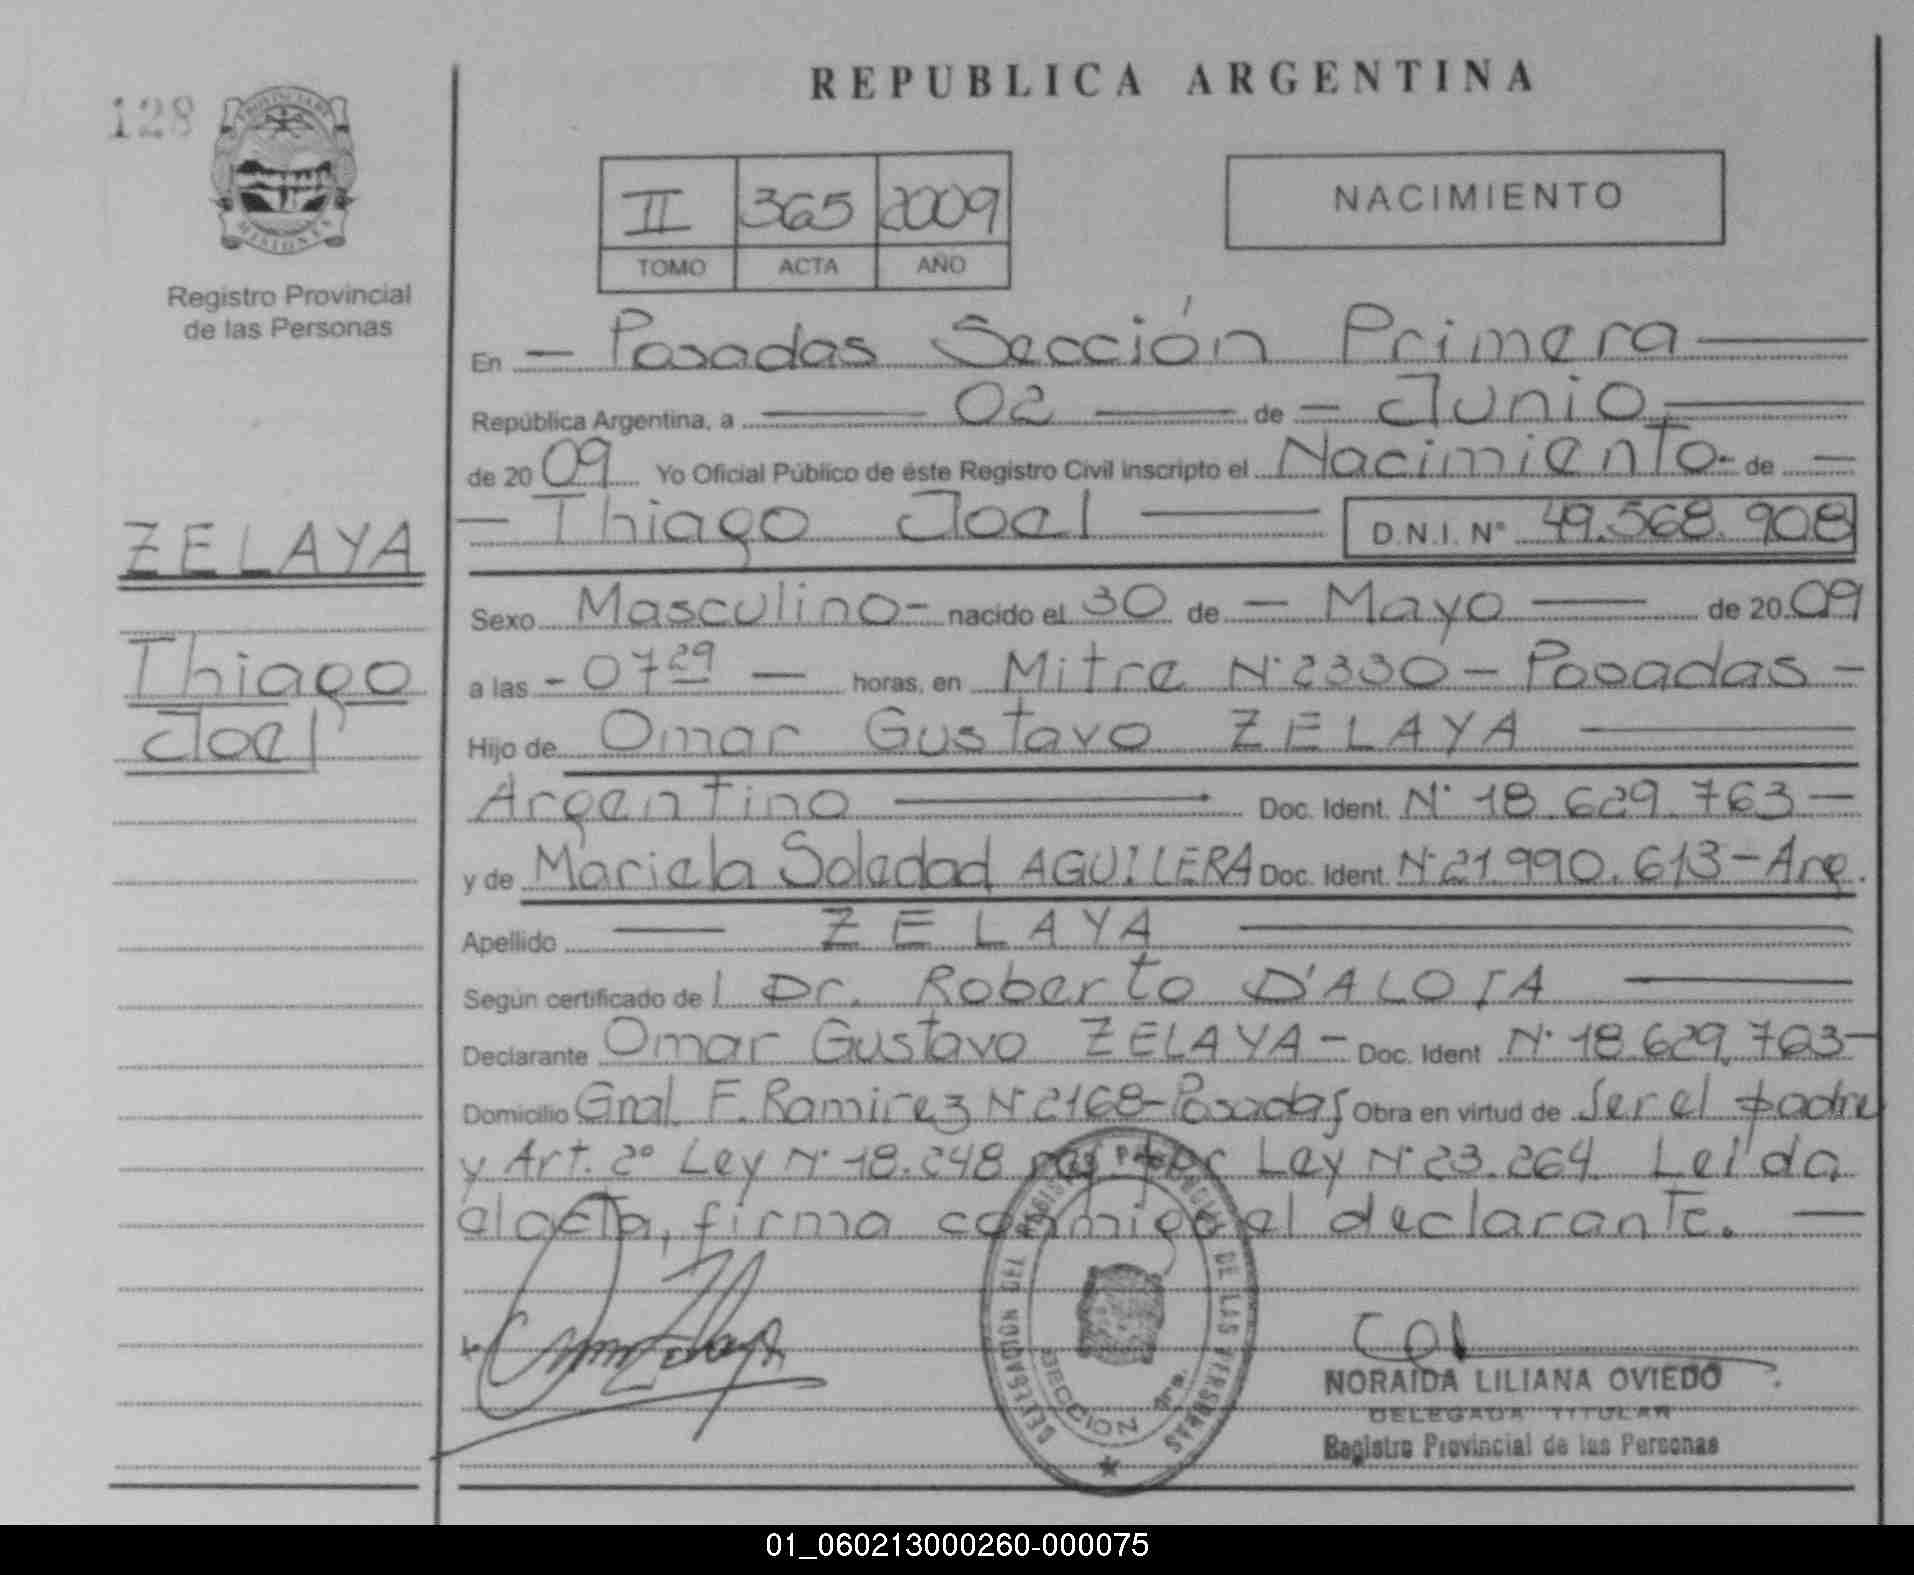 REPUBLICA ARGENTINA
128
PROVINCIA DE
MISIONES
Registro Provincial
de las Personas
II 365 2009
TOMO ACTA AÑO
NACIMIENTO
En — Posadas Sección Primera —
República Argentina, a — 02 — de — Junio —
de 20 09 Yo Oficial Público de éste Registro Civil inscripto el Nacimiento - de —
— Thiago Joel — D.N.I. N° 49.568.908
ZELAYA
Thiago
Joel
Sexo Masculino - nacido el 30 de — Mayo — de 20 09
a las - 07 29 — horas, en Mitre N° 2330 - Posadas -
Hijo de Omar Gustavo ZELAYA —
Argentino — Doc. Ident. N° 18.629.763 —
y de Mariela Soledad AGUILERA Doc. Ident. N° 21.990.613 - Arg.
Apellido — ZELAYA —
Según certificado del Dr. Roberto D'ALOIA —
Declarante Omar Gustavo ZELAYA - Doc. Ident N° 18.629.763 -
Domicilio Gral. F. Ramirez N° 2168 - Posadas Obra en virtud de Ser el padre
y Art. 2° Ley N° 18.248 por Ley N° 23.264. Leída
el acta, firma conmigo el declarante. —
DELEGACION DEL REGISTRO PROVINCIAL DE LAS PERSONAS
SECCION 1ra.
NORAIDA LILIANA OVIEDO
DELEGADA TITULAR
Registro Provincial de las Personas
01_060213000260-000075